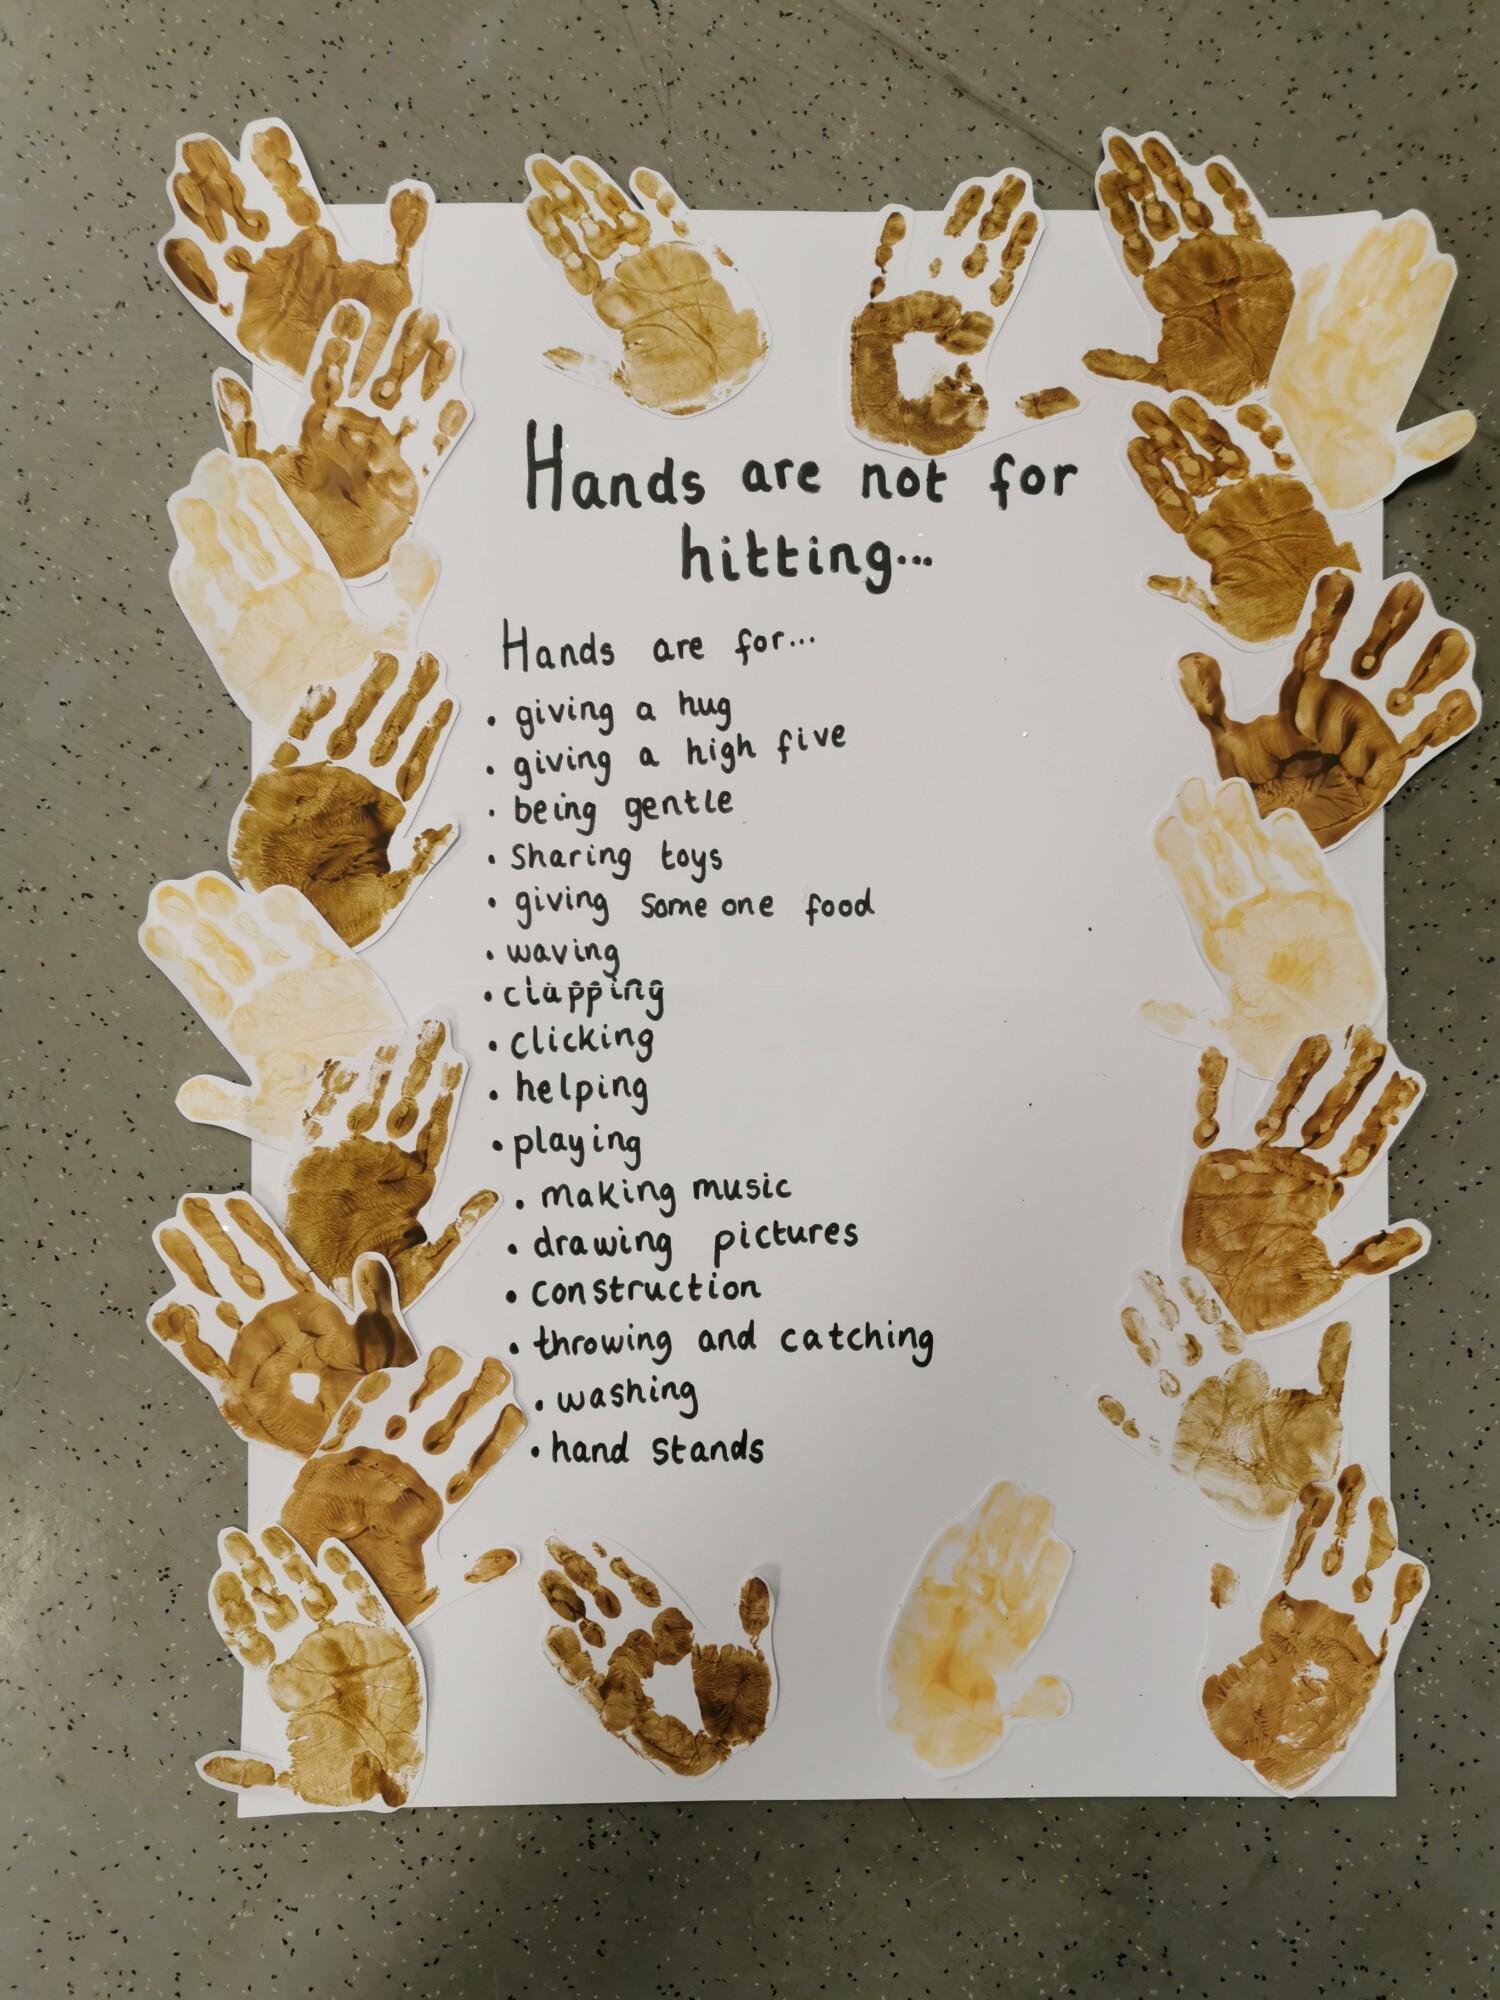 Hands are not for
hitting...
Hands are for...
• giving a hug
• giving a high five
• being gentle
• Sharing toys
• giving some one food
• waving
• clapping
• clicking
• helping
• playing
• making music
• drawing pictures
• construction
• throwing and catching
• washing
• hand stands